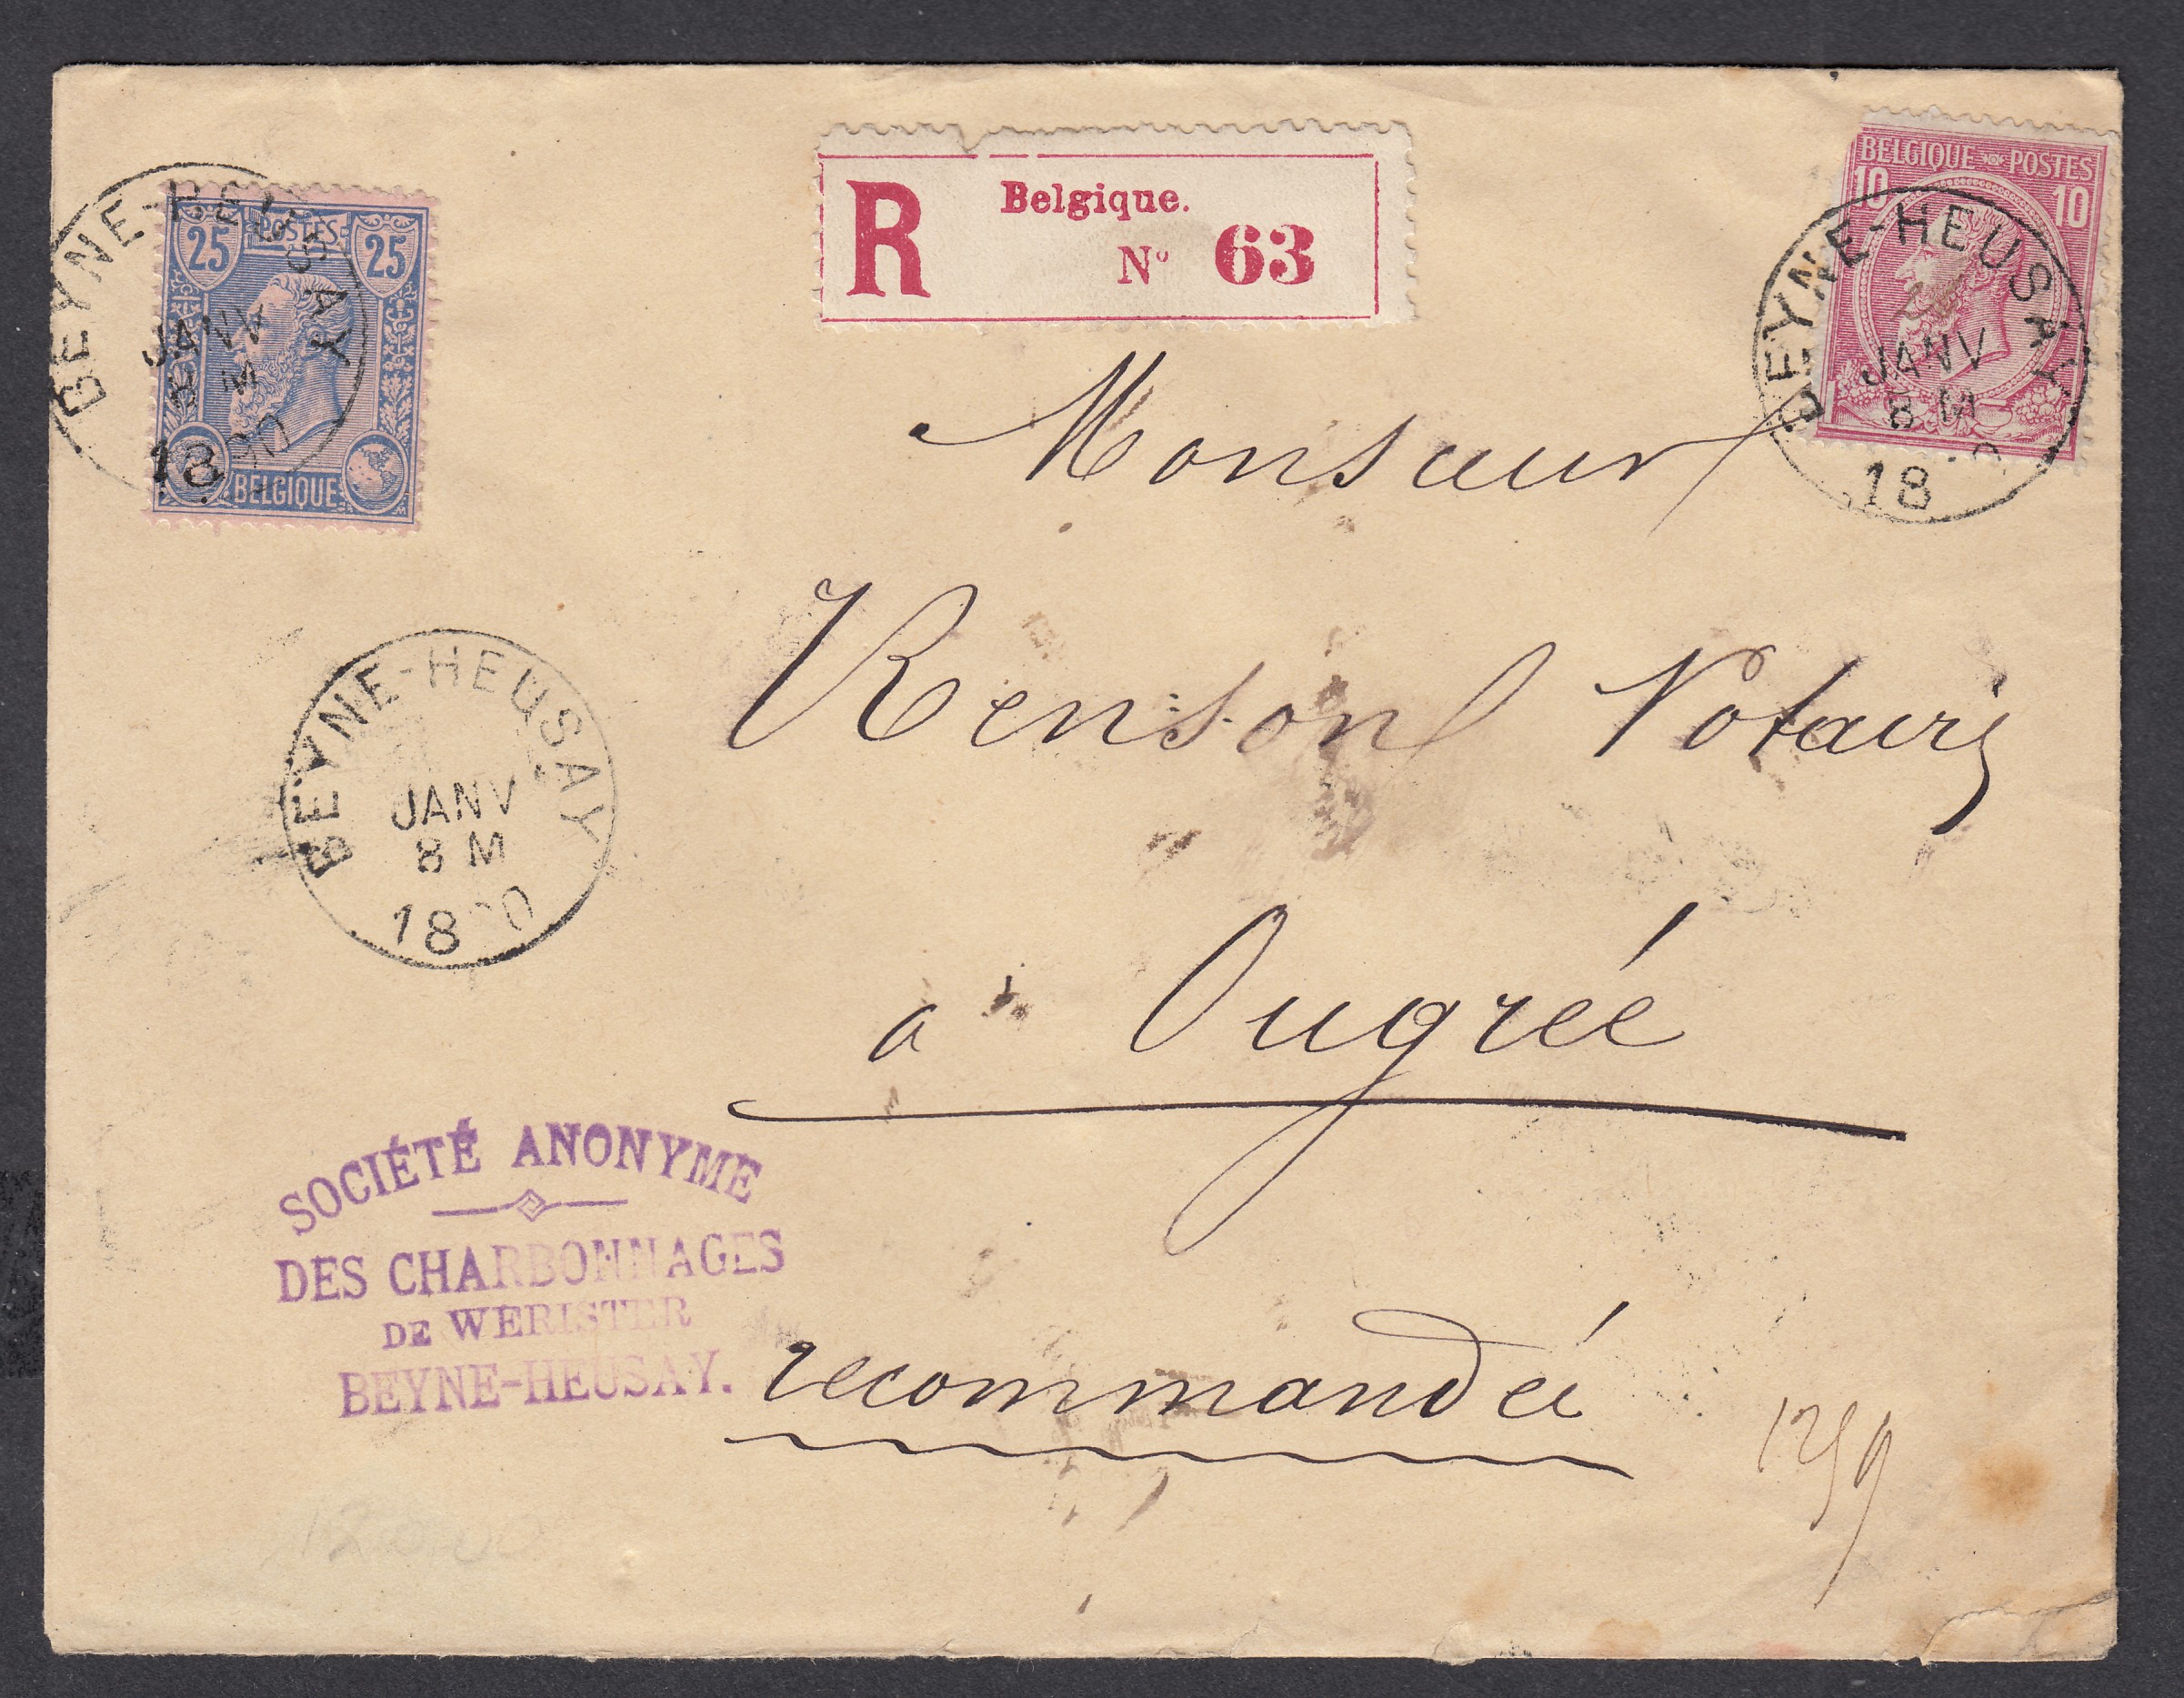 25 POSTES 25
BELGIQUE
BEYNE-HEUSAY
JANV
8 M
1890
R Belgique.
Nº 63
BELGIQUE POSTES
10 10
BEYNE-HEUSAY
JANV
8 M
18
Monsieur
Renson Notaire
à Ougrée
recommandée
BEYNE-HEUSAY
JANV
8 M
18 0
SOCIÉTÉ ANONYME
DES CHARBONNAGES
DE WERISTER
BEYNE-HEUSAY.
1259